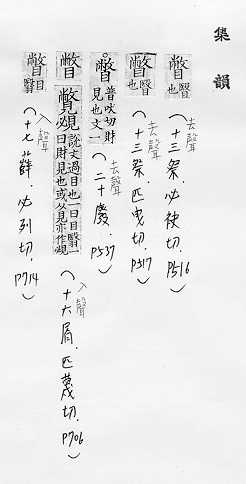 集韻
瞥 翳也 去聲 (十三祭.必袂切.P516)
瞥 翳也 去聲 (十三祭.匹曳切.P317)
瞥 普吠切財見也文一 去聲 (二十廢.P537)
瞥 說文過目也一曰目翳一曰財見也或从見亦作覕 入聲 (十六屑.匹蔑切.P706)
瞥 目翳 入聲 (十七薛.必列切.P714)